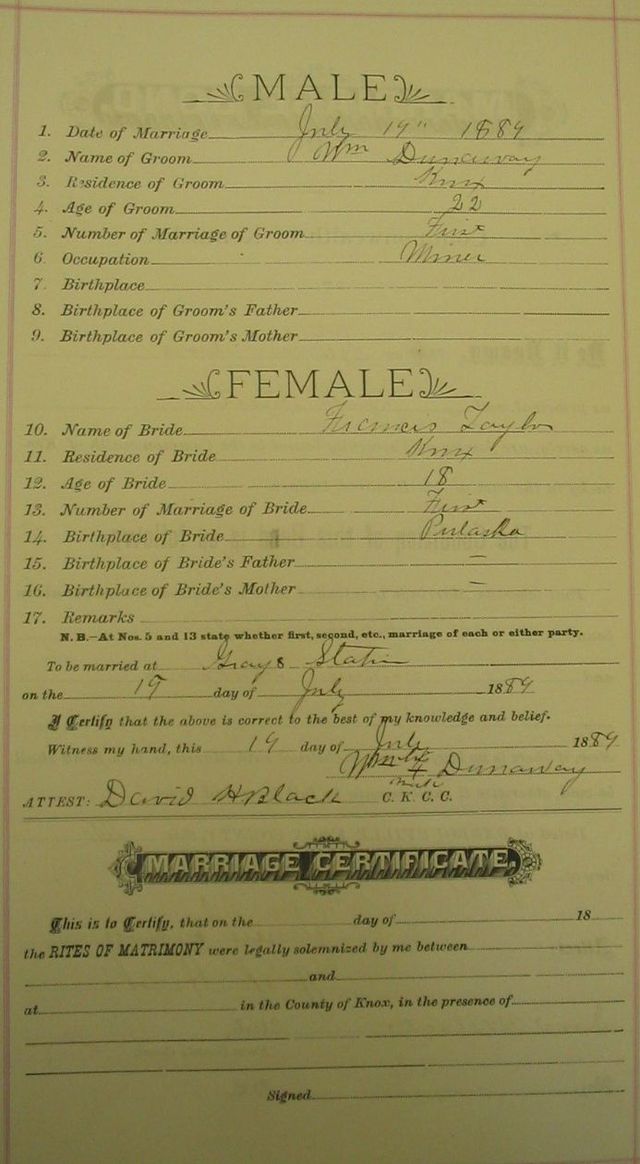 MALE
1. Date of Marriage July 19" 1889
2. Name of Groom Wm Dunaway
3. Residence of Groom Knox
4. Age of Groom 22
5. Number of Marriage of Groom First
6. Occupation Miner
7. Birthplace
8. Birthplace of Groom's Father
9. Birthplace of Groom's Mother
FEMALE
10. Name of Bride Frances Taylor
11. Residence of Bride Knox
12. Age of Bride 18
13. Number of Marriage of Bride First
14. Birthplace of Bride Pulaska
15. Birthplace of Bride's Father –
16. Birthplace of Bride's Mother –
17. Remarks
N. B.—At Nos. 5 and 13 state whether first, second, etc., marriage of each or either party.
To be married at Grays Station
on the 19 day of July 1889
I Certify that the above is correct to the best of my knowledge and belief.
Witness my hand, this 19 day of July 1889
Wm his + Dunaway
mark
ATTEST: David H Black C. K. C. C.
MARRIAGE CERTIFICATE.
This is to Certify, that on the day of 18
the RITES OF MATRIMONY were legally solemnized by me between
and
at in the County of Knox, in the presence of
Signed